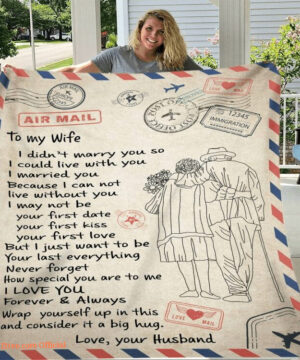 AIR MAIL
POST OFFICE
LOVE MAIL
TO 12345
IMMIGRATION
AIR MAIL
To my Wife
I didn't marry you so
I could live with you
I married you
Because I can not
live without you
I may not be
your first date
your first kiss
your first love
But I just want to be
Your last everything
Never forget
How special you are to me
I LOVE YOU
Forever & Always
Wrap yourself up in this
and consider it a big hug.
LOVE MAIL
Love, your Husband